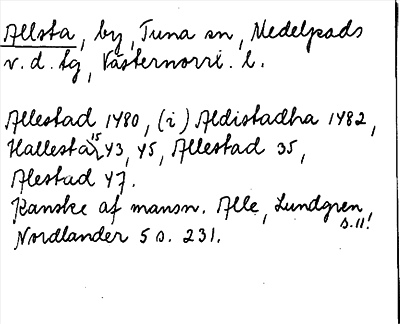 Allsta, by, Tuna sn, Medelpads
v. d. tg, Västernorrl. l.
Allestad 1480, (i) Aldistadha 1482,
Hallesta 15 43, 45, Allestad 35,
Alestad 47.
Kanske af mansn. Alle, Lundgren
s. 11!
Nordlander 5 s. 231.